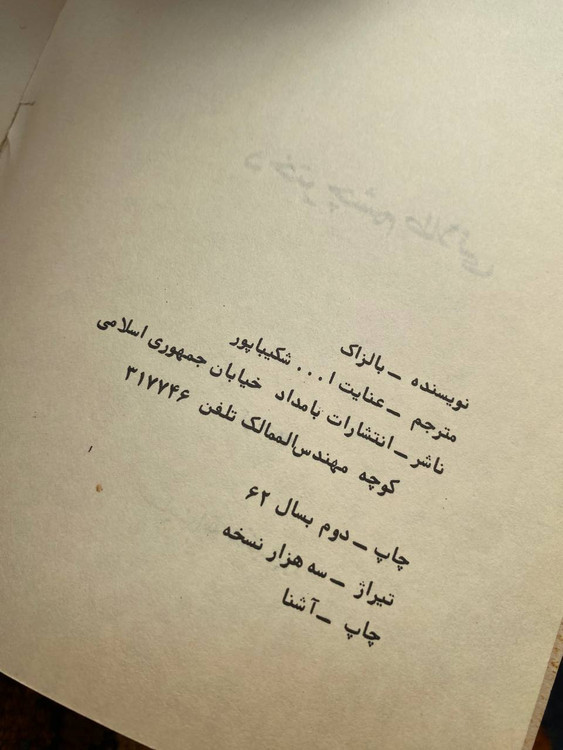 دختر چشم طلائی
نویسنده ـ بالزاک
مترجم ـ عنایت ا... شکیباپور
ناشر ـ انتشارات بامداد خیابان جمهوری اسلامی
کوچه مهندس‌الممالک تلفن ۳۱۷۷۴۶
چاپ ـ دوم بسال ۶۲
تیراژ ـ سه هزار نسخه
چاپ ـ آشنا